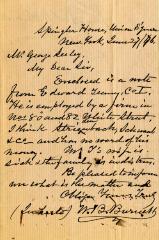 Spingler House, Union Square
New York, June 27/76
Mr. George Seeley,
My Dear Sir,
Enclosed is a note
from Edward Terry, Ct.
He is employed by a firm in
No 80 and 82 White Street,
I think
& Co and has no word of his
money. Mr T's wife is
sick & the family is in distress.
Be pleased to inform
me what is the matter and
Oblige Yours Truly